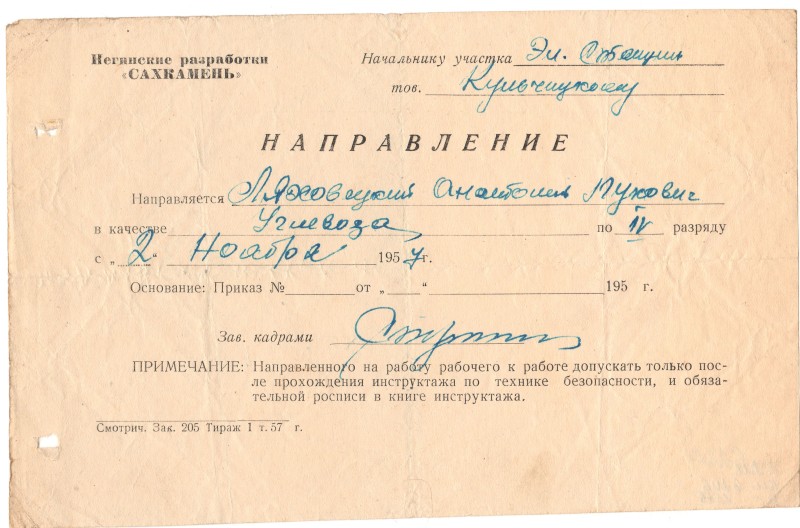 Негинские разработки
«САХКАМЕНЬ»
Начальнику участка Эл. Станции
тов. Кульчицкому
НАПРАВЛЕНИЕ
Направляется Ляховецкий Анатолий Лукович
в качестве Углевоза по IV разряду
с „2“ Ноября 1957г.
Основание: Приказ №________от „____“____________________195 г.
Зав. кадрами
ПРИМЕЧАНИЕ: Направленного на работу рабочего к работе допускать только пос-
ле прохождения инструктажа по технике безопасности, и обяза-
тельной росписи в книге инструктажа.
Смотрич. Зак. 205 Тираж 1 т. 57 г.